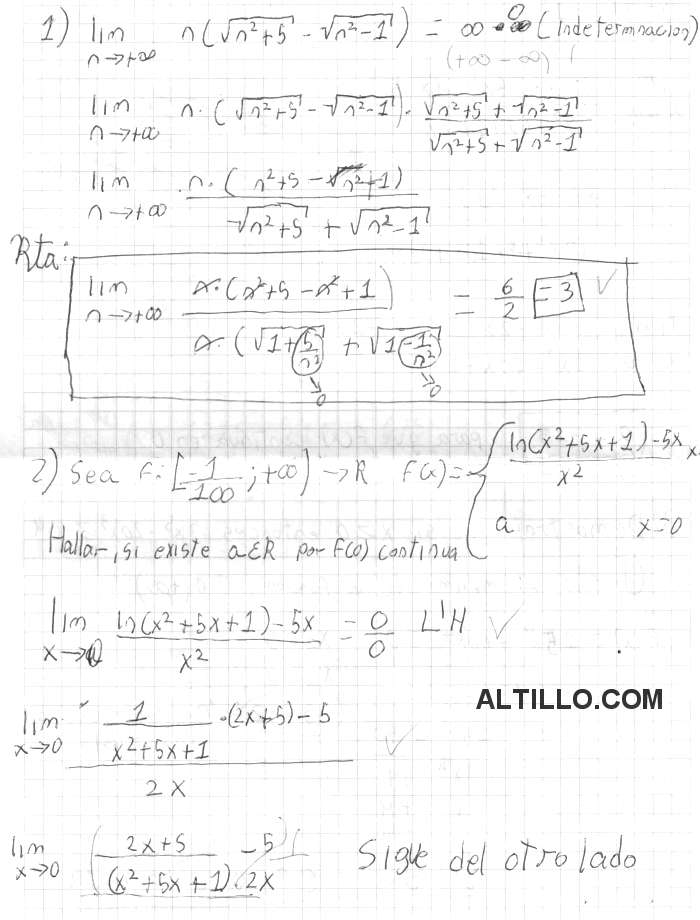 1) lim n→+∞ n(√(n²+5) - √(n²-1)) = ∞ · 0 (Indeterminación)
(+∞ - ∞)
lim n→+∞ n·(√(n²+5) - √(n²-1)) · (√(n²+5) + √(n²-1)) / (√(n²+5) + √(n²-1))
lim n→+∞ n·(n²+5 - n²+1) / (√(n²+5) + √(n²-1))
Rta:
lim n→+∞ n·(n²+5 - n²+1) / n·(√(1+5/n²) + √(1-1/n²) = 6/2 = 3 ✓
→0 →0
2) Sea F: [-1/100 ; +∞) → R F(x) = { (ln(x²+5x+1) - 5x) / x² x
a x=0
Hallar, si existe a ε R por F(0) continua
lim x→0 (ln(x²+5x+1) - 5x) / x² = 0/0 L'H ✓
ALTILLO.COM
lim x→0 (1/(x²+5x+1) · (2x+5) - 5) / 2x ✓
lim x→0 ((2x+5) / (x²+5x+1)·2x - 5)
Sigue del otro lado